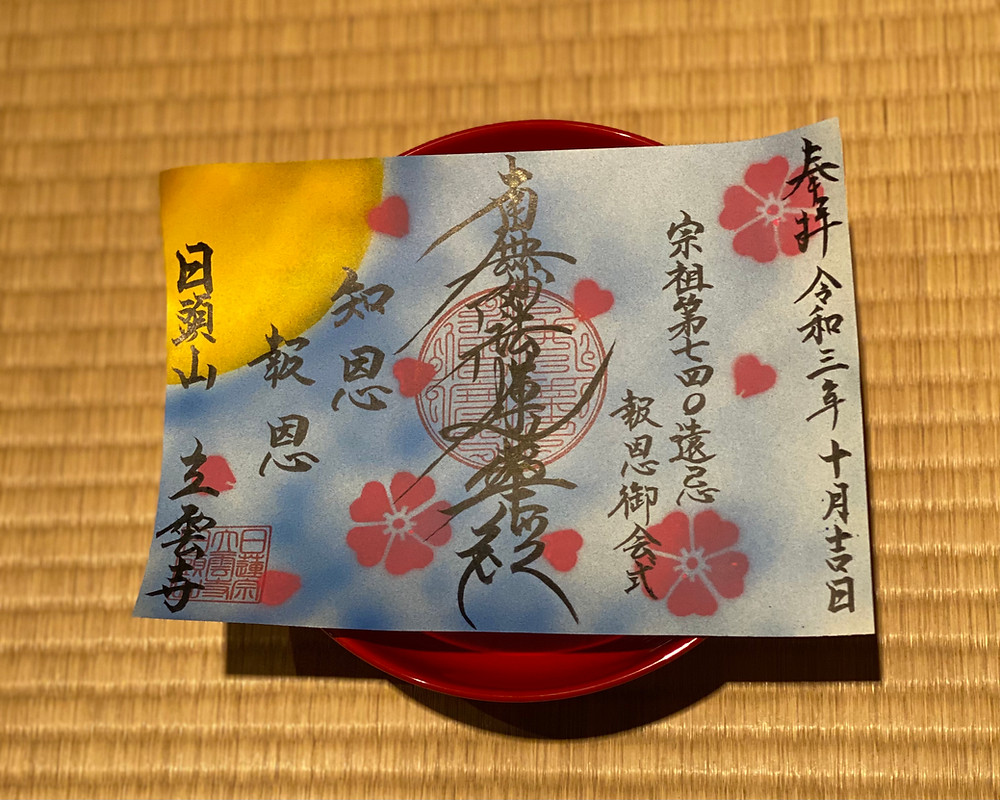 奉拝 令和三年十月吉日
宗祖第七四〇遠忌
報恩御会式
南無妙法蓮華経
知恩
報恩
日頭山 立雲寺
日蓮宗